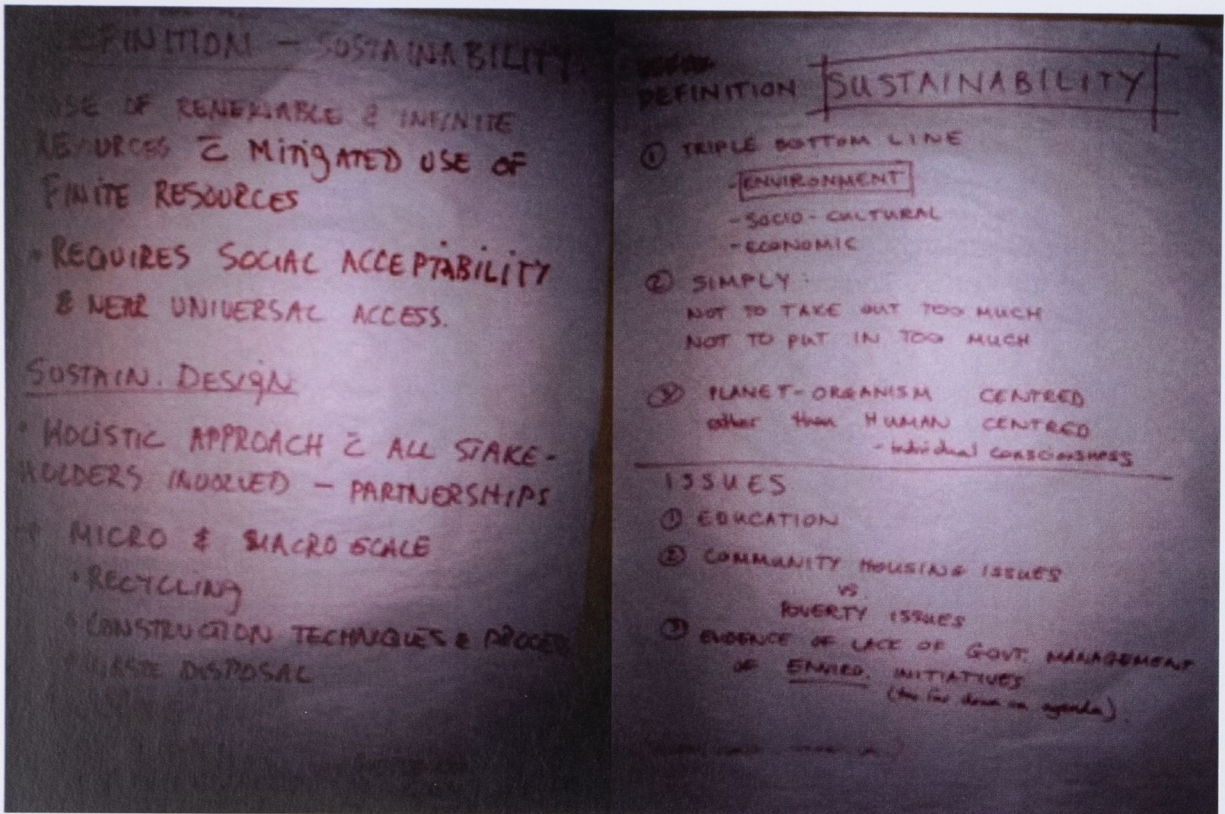 DEFINITION – SUSTAINABILITY
USE OF RENEWABLE & INFINITE
RESOURCES c̄ MITIGATED USE OF
FINITE RESOURCES
• REQUIRES SOCIAL ACCEPTABILITY
& NEAR UNIVERSAL ACCESS.
SUSTAIN. DESIGN
• HOLISTIC APPROACH c̄ ALL STAKE-
HOLDERS INVOLVED – PARTNERSHIPS
• MICRO & MACRO SCALE
• RECYCLING
• CONSTRUCTION TECHNIQUES & PROCES
• WASTE DISPOSAL
DEFINITION SUSTAINABILITY
① TRIPLE BOTTOM LINE
- ENVIRONMENT
- SOCIO-CULTURAL
- ECONOMIC
② SIMPLY:
NOT TO TAKE OUT TOO MUCH
NOT TO PUT IN TOO MUCH
③ PLANET-ORGANISM CENTRED
other than HUMAN CENTRED
- individual consciousness
ISSUES
① EDUCATION
② COMMUNITY HOUSING ISSUES
VS.
POVERTY ISSUES
③ EVIDENCE OF LACK OF GOVT. MANAGEMENT
OF ENVIRO. INITIATIVES
(too far down on agenda).